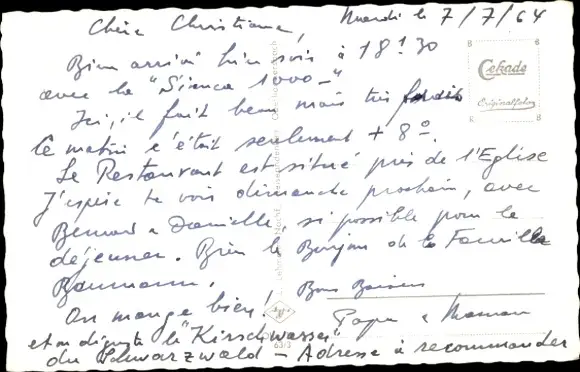 Chère Christiane, Mardi le 7/7/64
Bien arrivé hier soir à 18h30
avec la "Simca 1000-"
Ici, il fait beau mais très froid
Ce matin c'était seulement + 8°
Le Restaurant est situé près de l'Eglise
J'espère te voir dimanche prochain, avec
Bernard & Danielle, si possible pour le
déjeuner. Bien le Bonjour de la Famille
Baumann.
On mange bien! Bons Baisers
et on déguste le "Kirschwasser" Papa & Maman
du Schwarzwald - Adresse à recommander
Cekade
Originalfoto
63/3